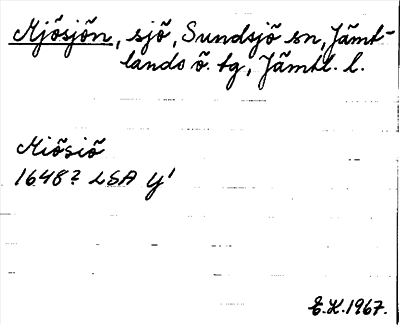 Mjösjön, sjö, Sundsjö sn, Jämt-
lands ö. tg, Jämtl. l.
Miösiö
1648? LSA Y¹
E.K. 1967.